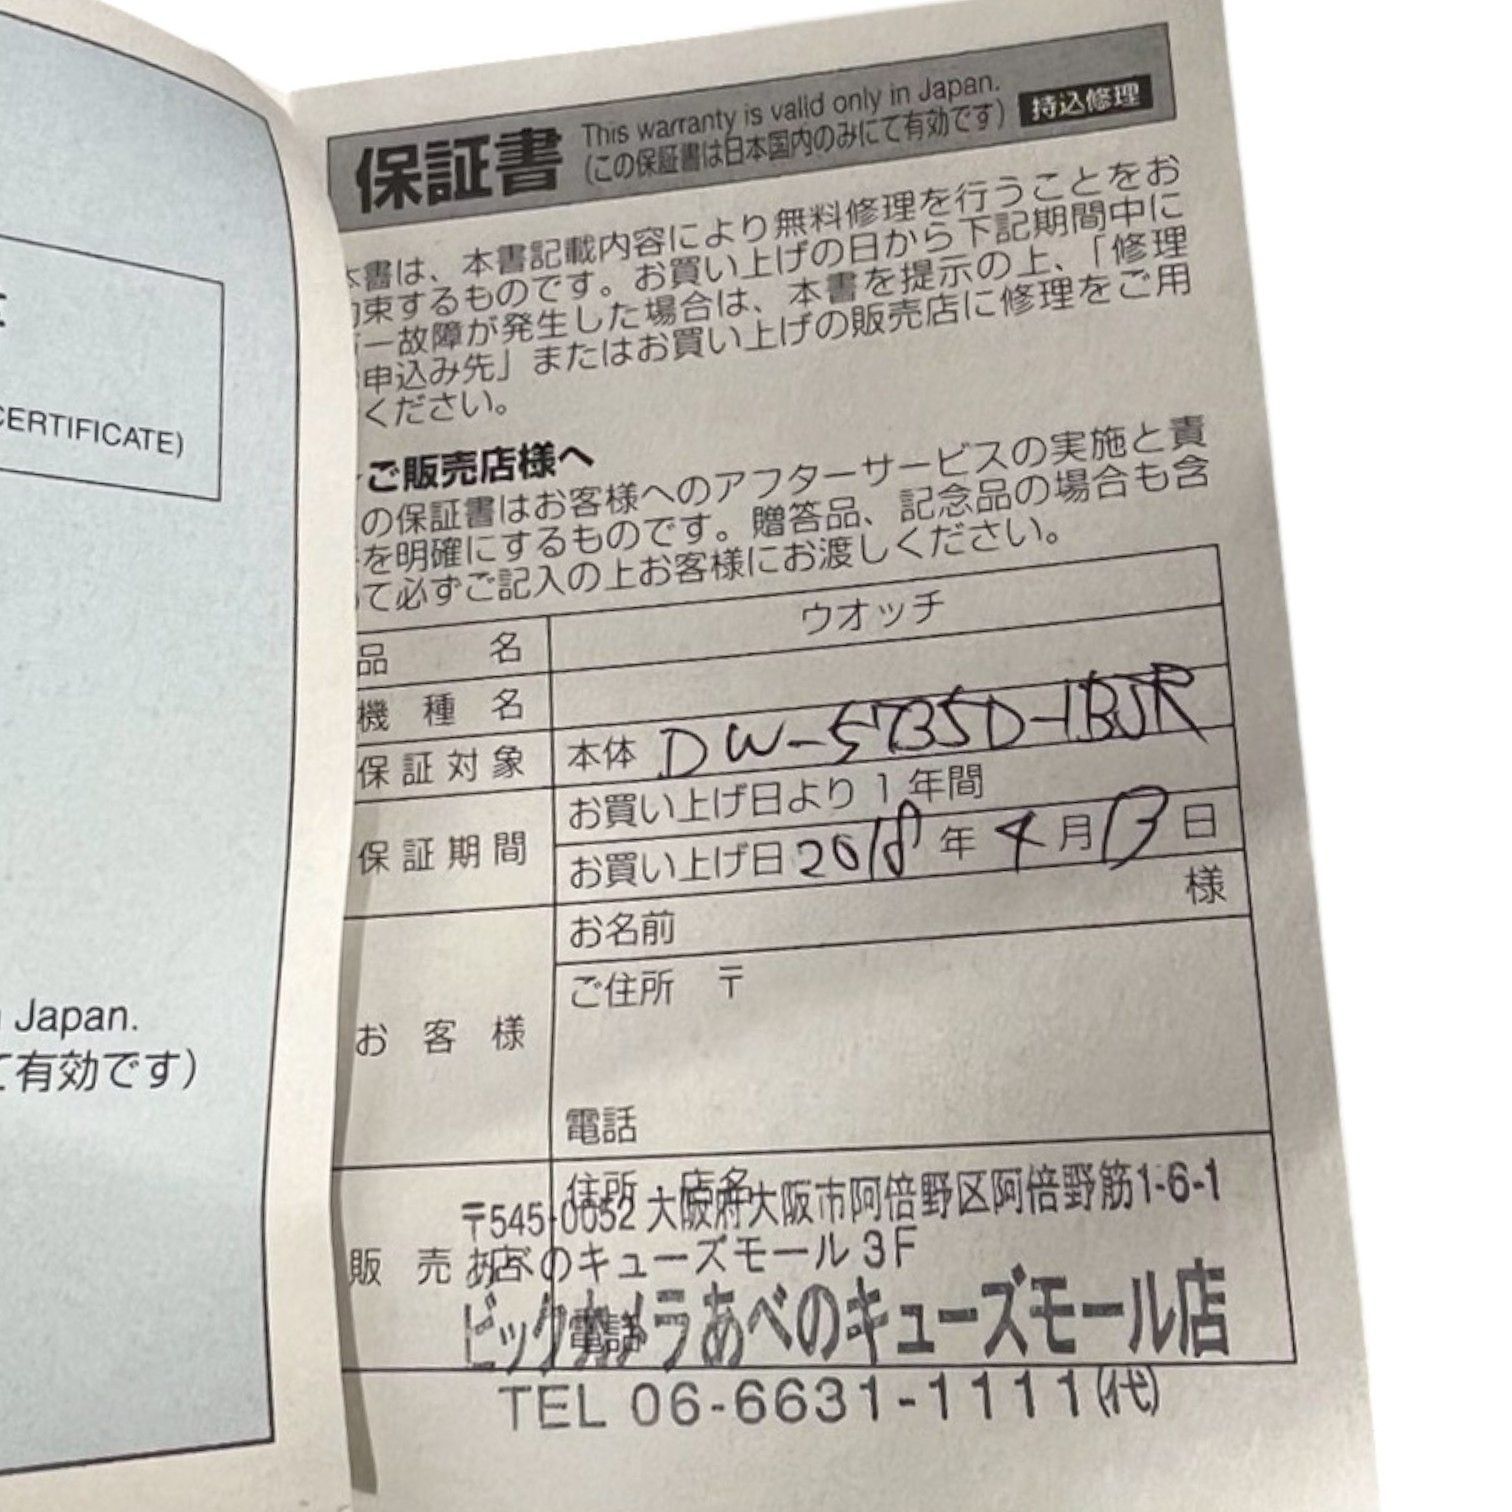 CERTIFICATE)
Japan.
て有効です)
保証書 This warranty is valid only in Japan.
(この保証書は日本国内のみにて有効です) 持込修理
本書は、本書記載内容により無料修理を行うことをお
約束するものです。お買い上げの日から下記期間中に
万一故障が発生した場合は、本書を提示の上、「修理
申込み先」またはお買い上げの販売店に修理をご用
ください。
ご販売店様へ
の保証書はお客様へのアフターサービスの実施と責
を明確にするものです。贈答品、記念品の場合も含
て必ずご記入の上お客様にお渡しください。
品名 ウオッチ
機種名
保証対象 本体 DW-5735D-1BJR
保証期間 お買い上げ日より1年間
お買い上げ日 2018 年 4 月 13 日
お客様 お名前 様
ご住所 〒
電話
販売店 住所・店名
〒545-0052 大阪府大阪市阿倍野区阿倍野筋1-6-1
あべのキューズモール3F
電話
ビックカメラあべのキューズモール店
TEL 06-6631-1111(代)